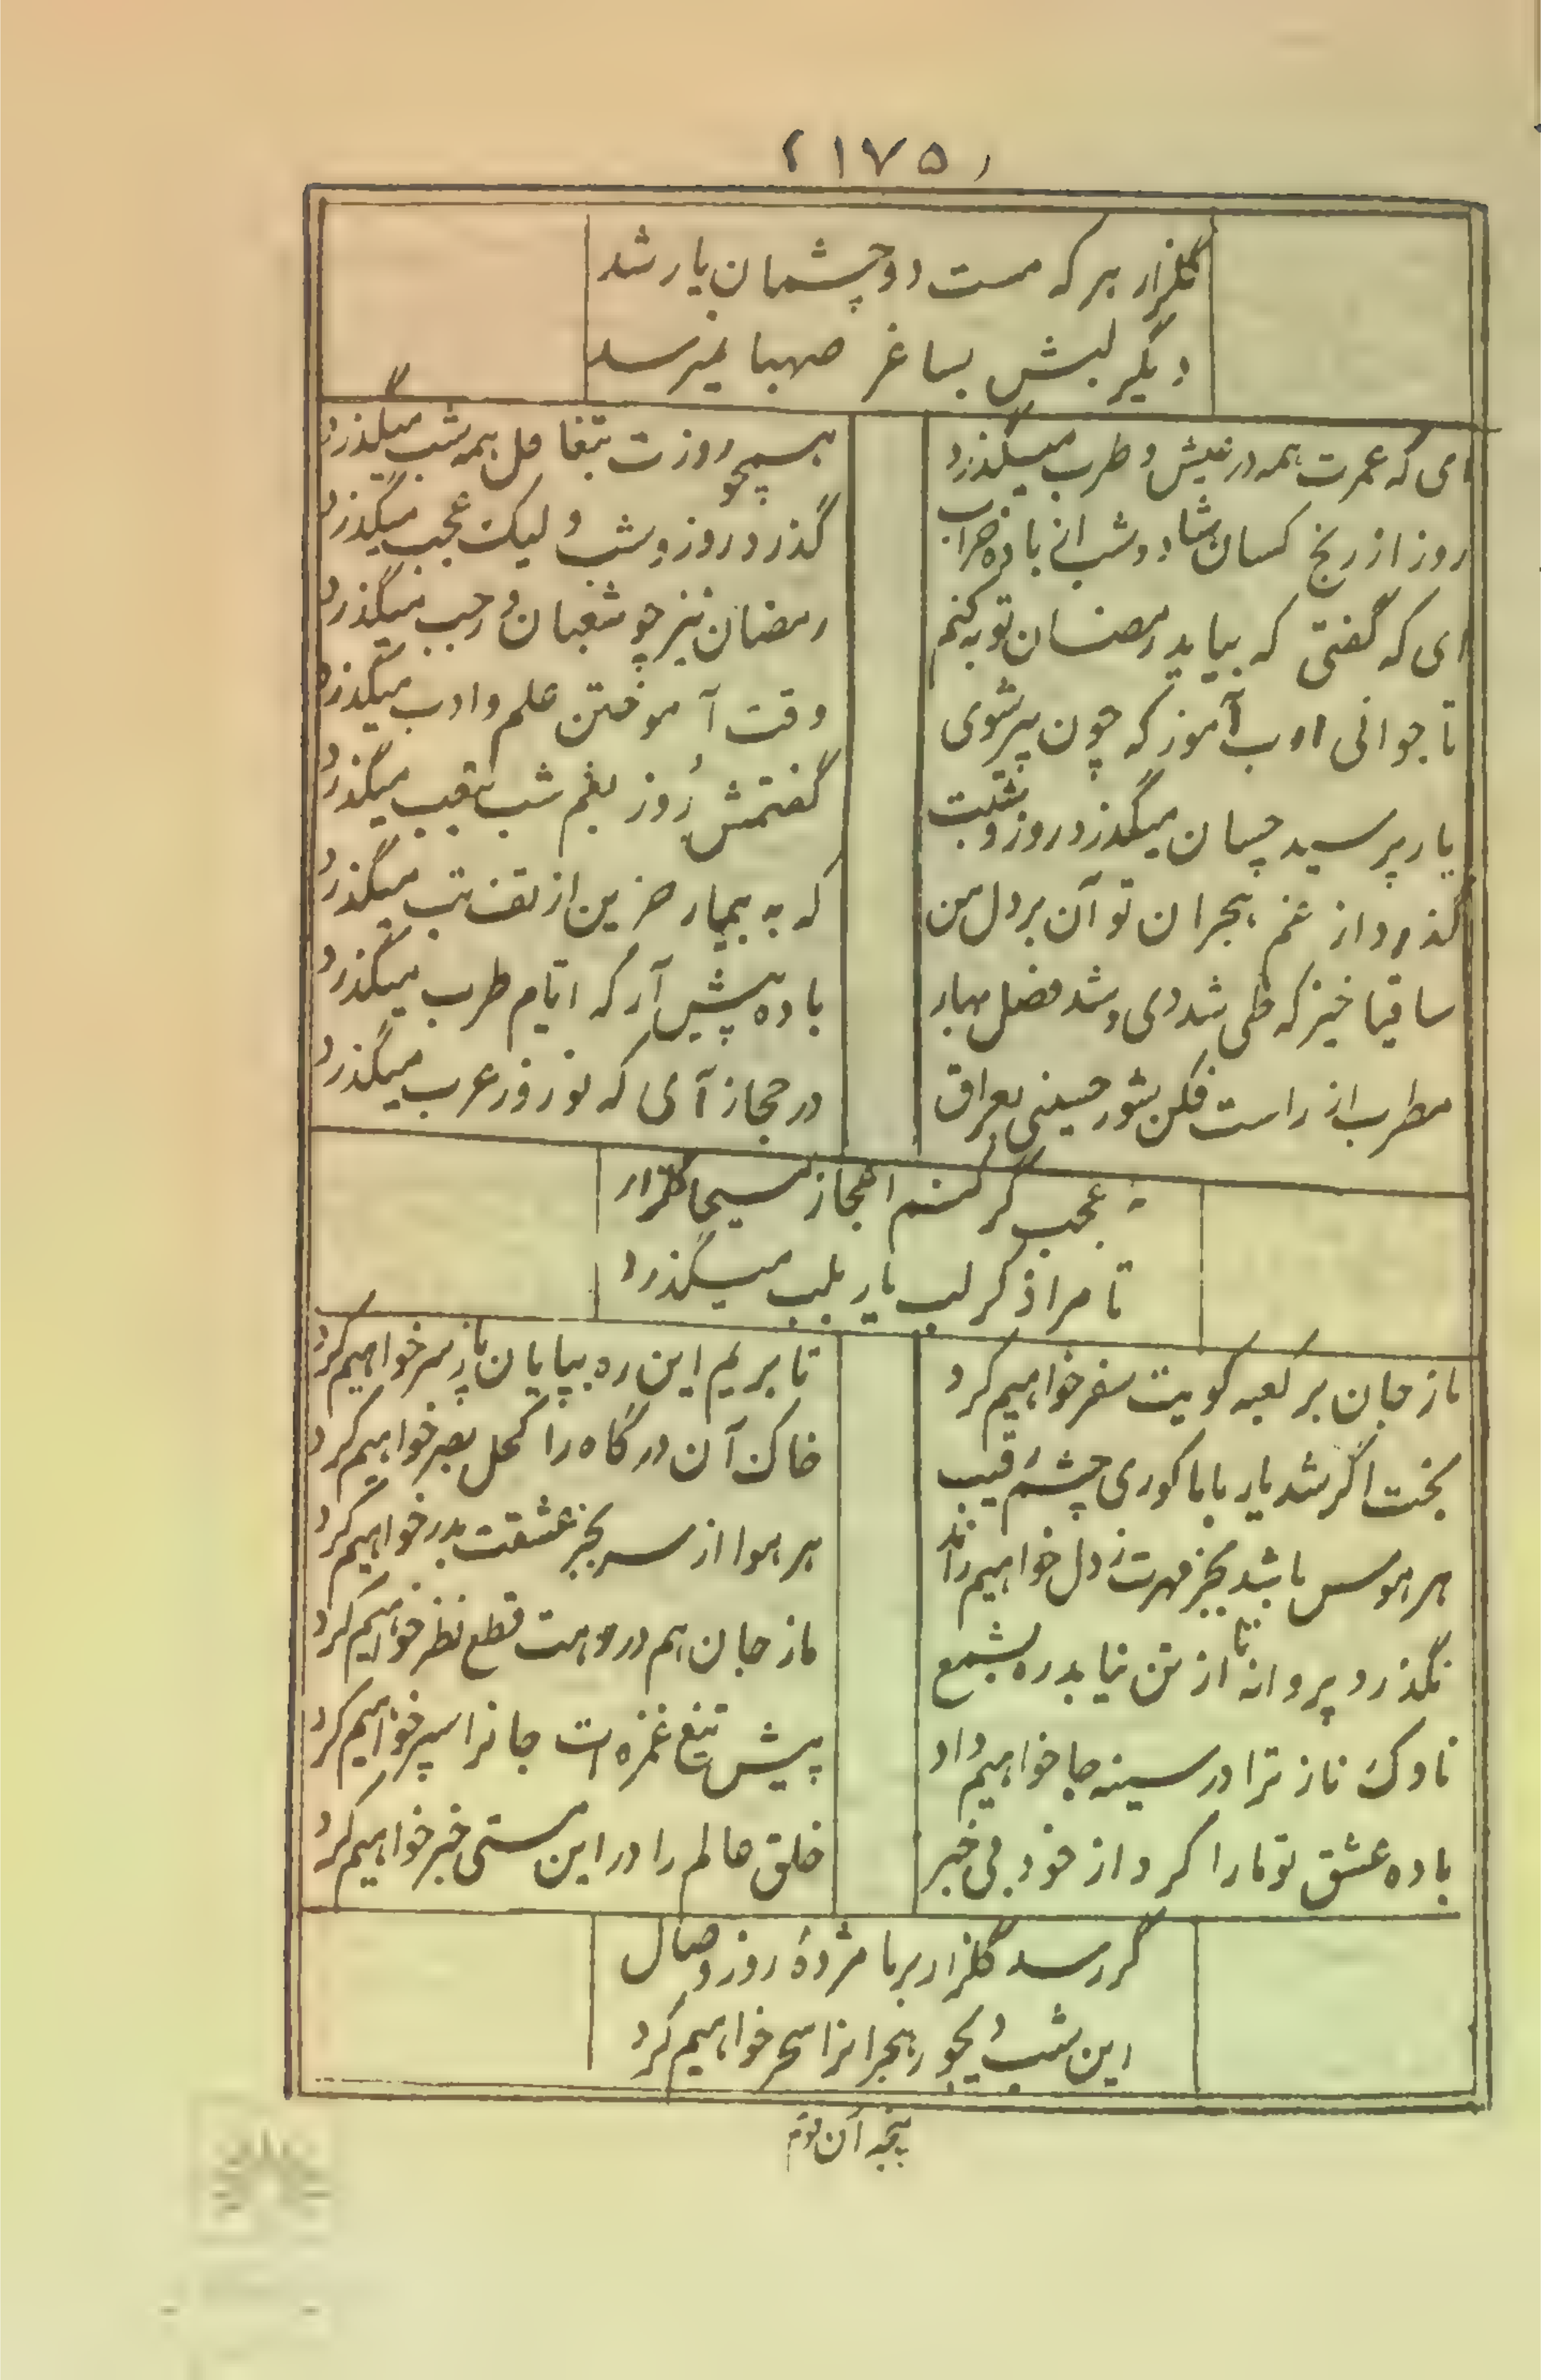 (۱۷۵)
گلزار هر که مست دو چشمان یار شد
دیگر لبش بساغر صهبا نمیرسد
ای که عمرت همه در عیش و طرب میگذرد
همچو روزت بتغافل همه شب میگذرد
روز از رنج کسان شاد و شب از باده خراب
گذرد روز و شب و لیک عجب میگذرد
ای که گفتی که بیاید رمضان توبه کنم
رمضان نیز چو شعبان و رجب میگذرد
تا جوانی ادب آموز که چون پیر شوی
وقت آموختن علم و ادب میگذرد
یار پرسید چسان میگذرد روز و شبت
گفتمش روز بغم شب بتعب میگذرد
گذرد از غم هجران تو آن بر دل من
که به بیمار حزین از تف تب میگذرد
ساقیا خیز که طی شد دی و شد فصل بهار
باده پیش آر که ایام طرب میگذرد
مطرب از راست فکن شور حسینی بعراق
در حجاز آی که نوروز عرب میگذرد
نه عجب گر کنم اعجاز مسیحا گلزار
تا مرا ذکر لب یار بلب میگذرد
ما ز جان بر کعبه کویت سفر خواهیم کرد
تا بریم این ره بپایان پا ز سر خواهیم کرد
بخت اگر شد یار با ما کوری چشم رقیب
خاک آن درگاه را کحل بصر خواهیم کرد
هر هوس باشد بجز مهرت ز دل خواهیم راند
هر هوا از سر بجز عشقت بدر خواهیم کرد
نگذرد پروانه تا از تن نیابد ره بشمع
ما ز جان هم در رهت قطع نظر خواهیم کرد
ناوک ناز ترا در سینه جا خواهیم داد
پیش تیغ غمزه ات جانرا سپر خواهیم کرد
باده عشق تو ما را کرد از خود بی خبر
خلق عالم را در این مستی خبر خواهیم کرد
گر رسد گلزار بر ما مژدهٔ روز وصال
این شب دیجور هجرانرا سحر خواهیم کرد
پنجه آن